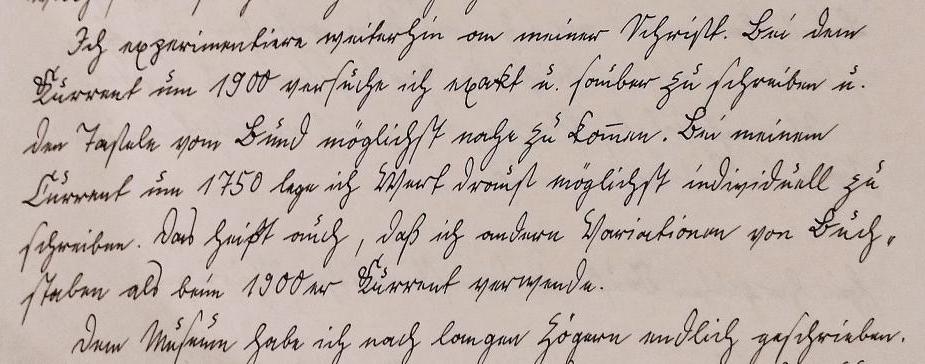 Ich experimentiere weiterhin an meiner Schrift. Bei dem
Kurrent um 1900 versuche ich exakt u. sauber zu schreiben u.
den Tafeln vom Bund möglichst nahe zu kom̅en. Bei meinem
Current um 1750 lege ich Wert drauf möglichst individuell zu
schreiben. Das heißt auch, daß ich andern Variationen von Buch„
staben als beim 1900er Kurrent verwende.
Dem Museum habe ich nach langen Zögern endlich geschrieben.